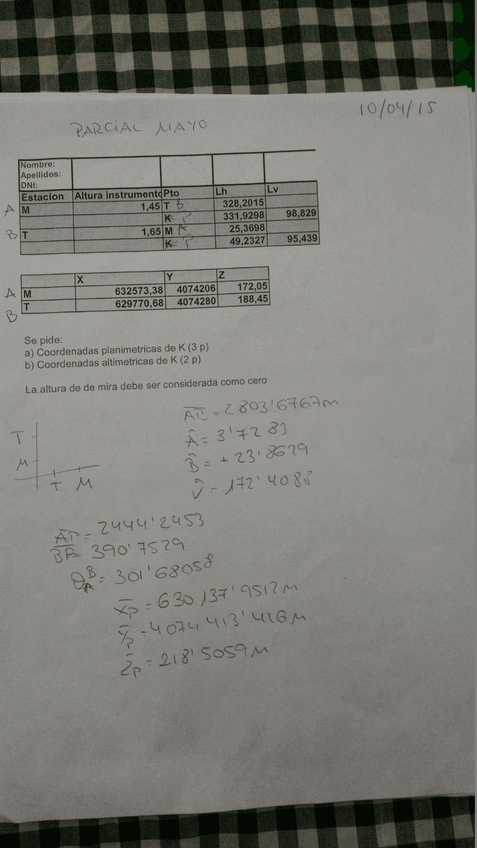 10/04/15
PARCIAL MAYO
Nombre:
Apellidos:
DNI:
Estacion Altura instrumento Pto Lh Lv
A M 1,45 T B 328,2015
K P 331,9298 98,829
B T 1,65 M A 25,3698
K P 49,2327 95,439
X Y Z
A M 632573,38 4074206 172,05
B T 629770,68 4074280 188,45
Se pide:
a) Coordenadas planimetricas de K (3 p)
b) Coordenadas altimetricas de K (2 p)
La altura de de mira debe ser considerada como cero
AB = 2803'6767 m
Â = 3'7283
B̂ = + 23'8629
V̂ = 172'4088
T
M
T M
AP = 2444'2453
BP = 390'7529
θ_A^B = 301'68058
X_P = 630 137'9512 m
Y_P = 4074 413'416 m
Z_P = 218'5059 m